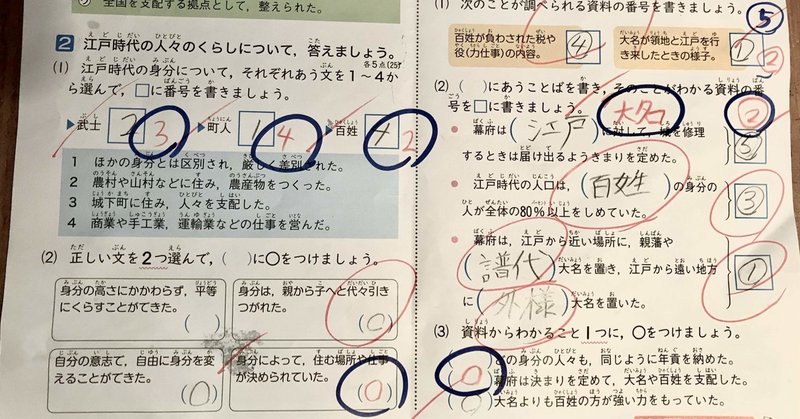 全国を支配する拠点として、整えられた。
2 江戸時代の人々のくらしについて、答えましょう。
(1) 江戸時代の身分について、それぞれあう文を1〜4か 各5点(25)
ら選んで、□に番号を書きましょう。
▶武士 2 3 ▶町人 1 4 ▶百姓 4 2
1 ほかの身分とは区別され、厳しく差別された。
2 農村や山村などに住み、農産物をつくった。
3 城下町に住み、人々を支配した。
4 商業や手工業、運輸業などの仕事を営んだ。
(2) 正しい文を2つ選んで、( )に○をつけましょう。
身分の高さにかかわらず、平等
にくらすことができた。
( )
身分は、親から子へと代々引き
つがれた。
(○)
自分の意志で、自由に身分を変
えることができた。
(○)
身分によって、住む場所や仕事
が決められていた。
(○)
(1) 次のことが調べられる資料の番号を書きましょう。
⑤
百姓が負わされた税や
役(力仕事)の内容。
④
大名が領地と江戸を行
き来したときの様子。
②
(2) ( )にあうことばを書き、そのことがわかる資料の番
号を□に書きましょう。
大名
②
● 幕府は(江戸)に対して、城を修理
するときは届け出るようきまりを定めた。
⑤
● 江戸時代の人口は、(百姓)の身分の
人が全体の80%以上をしめていた。
③
● 幕府は、江戸から近い場所に、親藩や
(譜代)大名を置き、江戸から遠い地方
に(外様)大名を置いた。
①
(3) 資料からわかること1つに、○をつけましょう。
どの身分の人々も、同じように年貢を納めた。
○ 幕府は決まりを定めて、大名や百姓を支配した。
大名よりも百姓の方が強い力をもっていた。